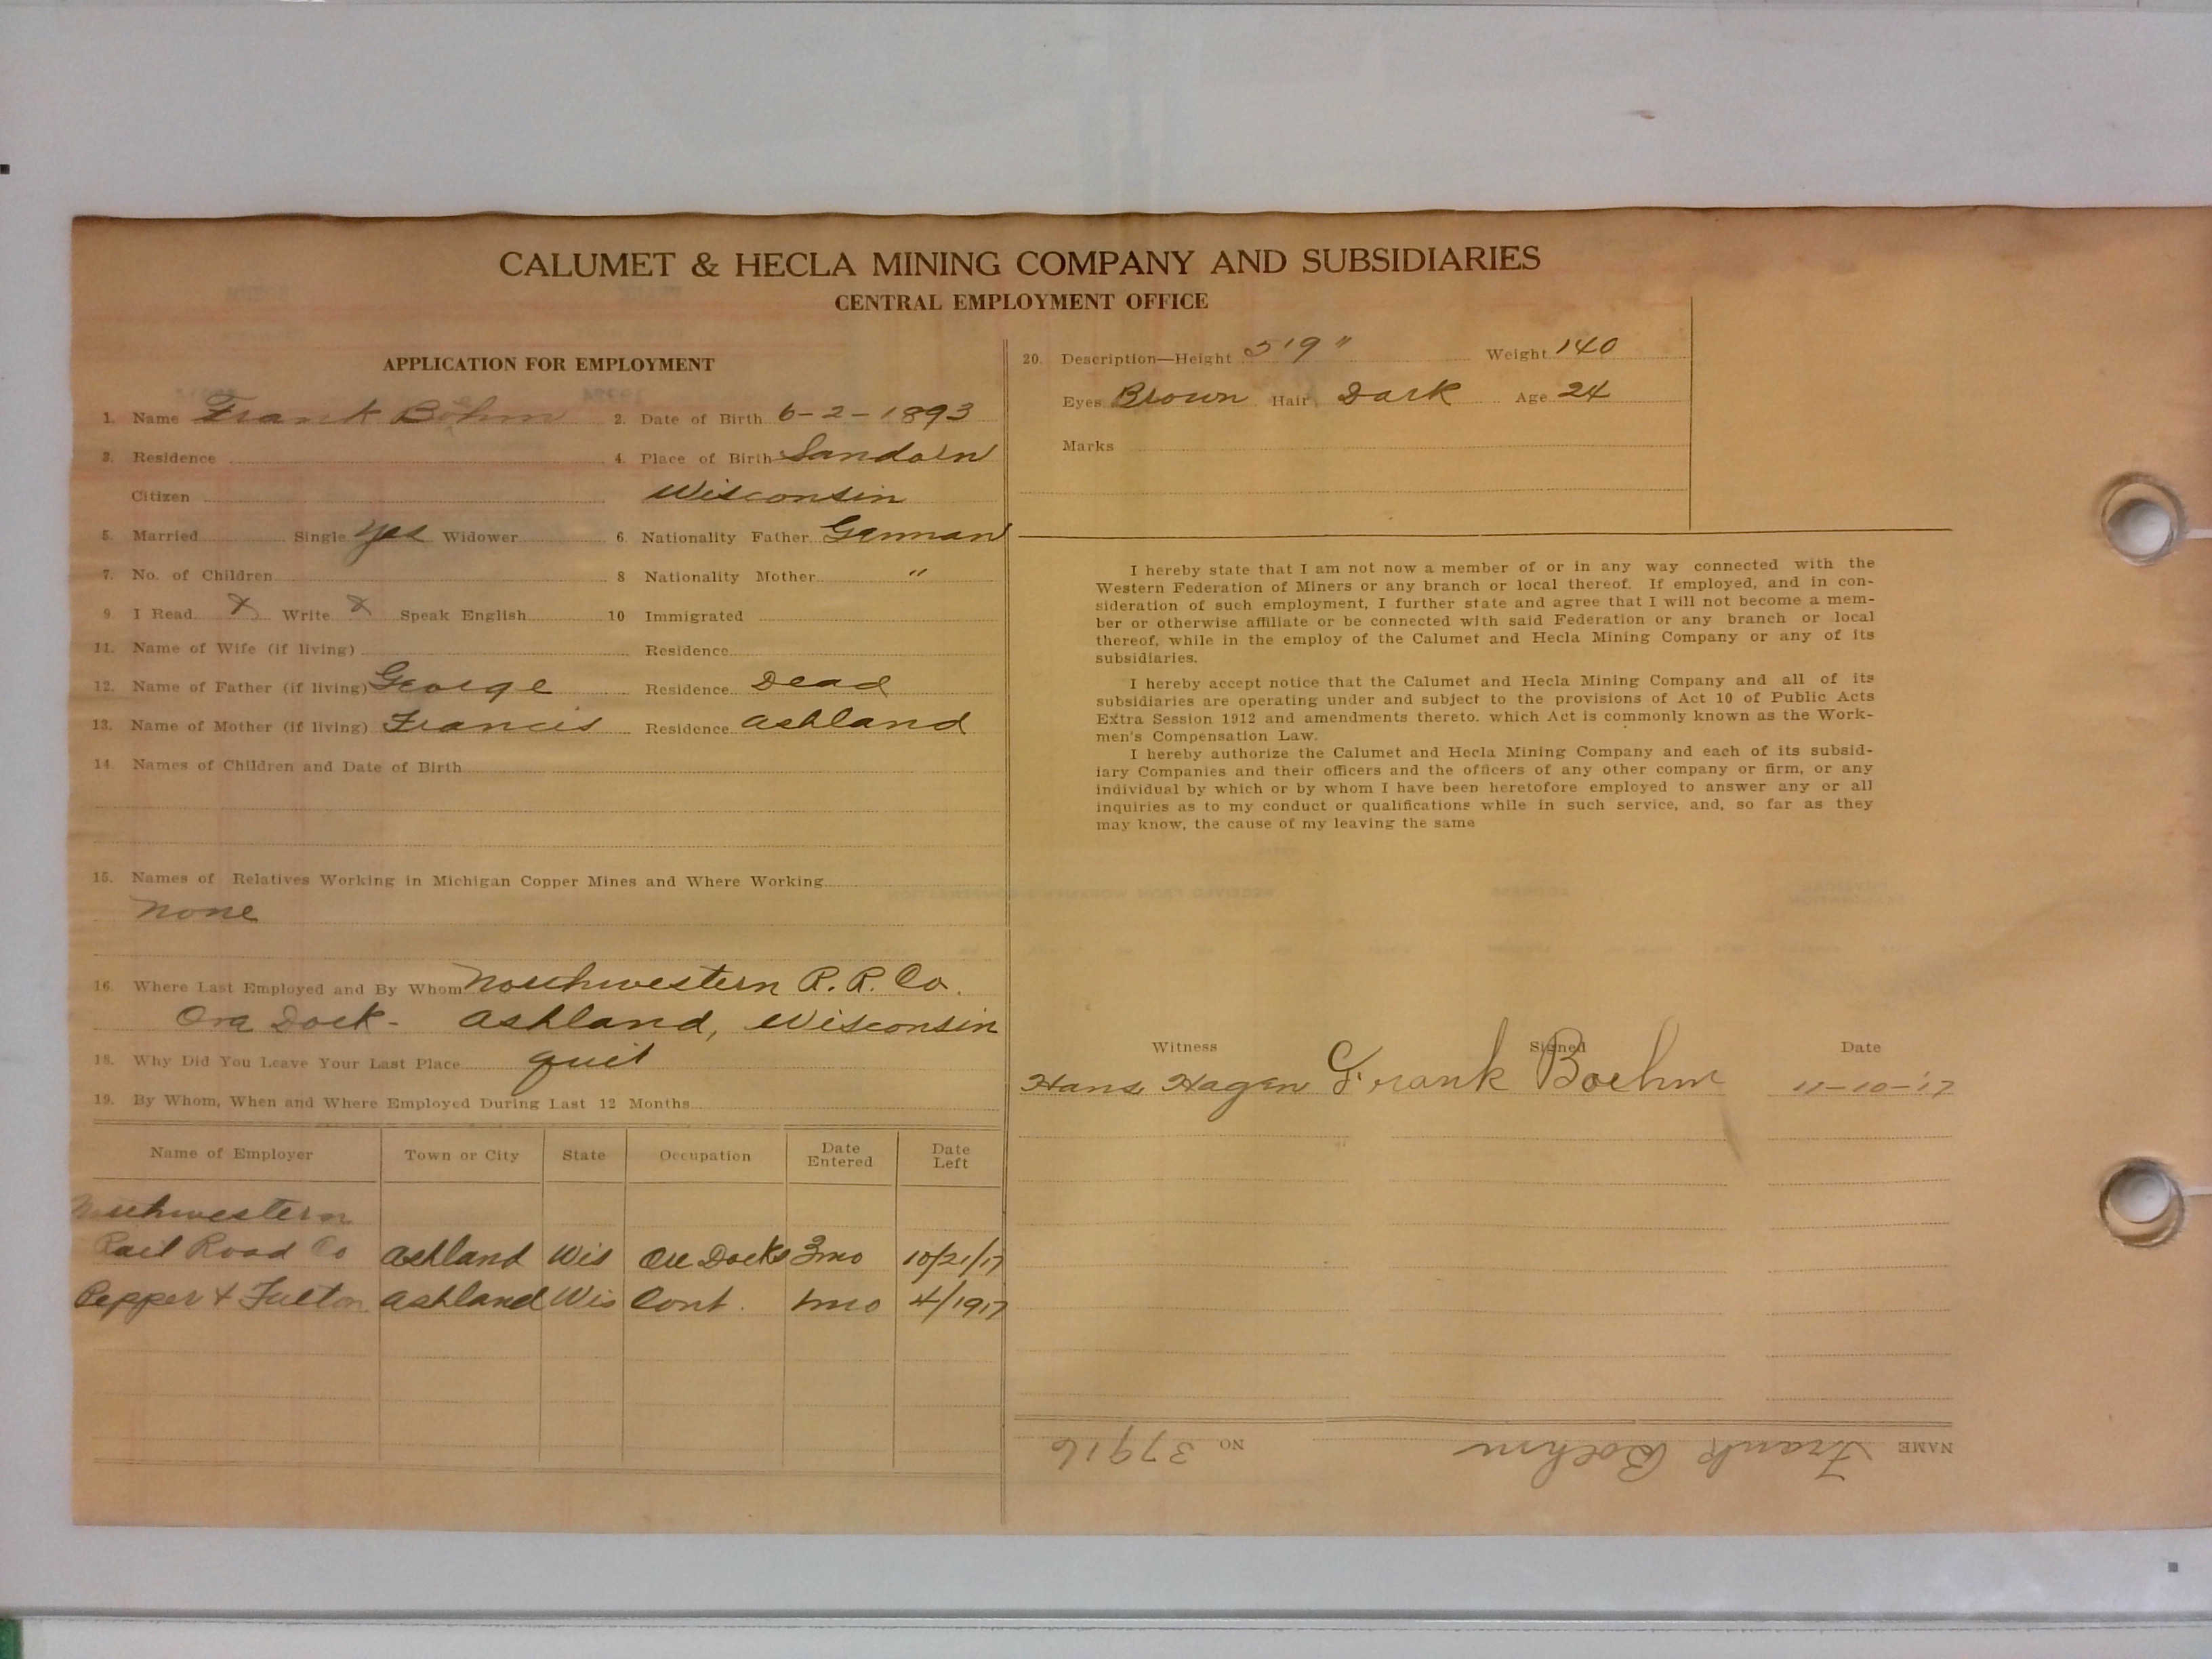 CALUMET & HECLA MINING COMPANY AND SUBSIDIARIES
CENTRAL EMPLOYMENT OFFICE
APPLICATION FOR EMPLOYMENT
1. Name Frank Böhm 2. Date of Birth 6-2-1893
3. Residence 4. Place of Birth Sandorn
Citizen Wisconsin
5. Married Single Yes Widower 6. Nationality Father German
7. No. of Children 8 Nationality Mother "
9. I Read X Write X Speak English 10 Immigrated
11. Name of Wife (if living) Residence
12. Name of Father (if living) George Residence Dead
13. Name of Mother (if living) Francis Residence Ashland
14. Names of Children and Date of Birth
15. Names of Relatives Working in Michigan Copper Mines and Where Working
None
16. Where Last Employed and By Whom Northwestern R. R. Co.
Ore Dock - Ashland, Wisconsin
18. Why Did You Leave Your Last Place quit
19. By Whom, When and Where Employed During Last 12 Months
Name of Employer Town or City State Occupation Date Entered Date Left
Northwestern
Rail Road Co Ashland Wis Ore Docks 3mo 10/21/17
Pepper & Fulton Ashland Wis Cont. 1mo 4/1917
20. Description—Height 5'9" Weight 140
Eyes Brown Hair Dark Age 24
Marks
I hereby state that I am not now a member of or in any way connected with the
Western Federation of Miners or any branch or local thereof. If employed, and in con-
sideration of such employment, I further state and agree that I will not become a mem-
ber or otherwise affiliate or be connected with said Federation or any branch or local
thereof, while in the employ of the Calumet and Hecla Mining Company or any of its
subsidiaries.
I hereby accept notice that the Calumet and Hecla Mining Company and all of its
subsidiaries are operating under and subject to the provisions of Act 10 of Public Acts
Extra Session 1912 and amendments thereto. which Act is commonly known as the Work-
men's Compensation Law.
I hereby authorize the Calumet and Hecla Mining Company and each of its subsid-
iary Companies and their officers and the officers of any other company or firm, or any
individual by which or by whom I have been heretofore employed to answer any or all
inquiries as to my conduct or qualifications while in such service, and, so far as they
may know, the cause of my leaving the same
Witness Signed Date
Hans Hagen Frank Boehm 11-10-'17
NAME Frank Boehm NO 37916